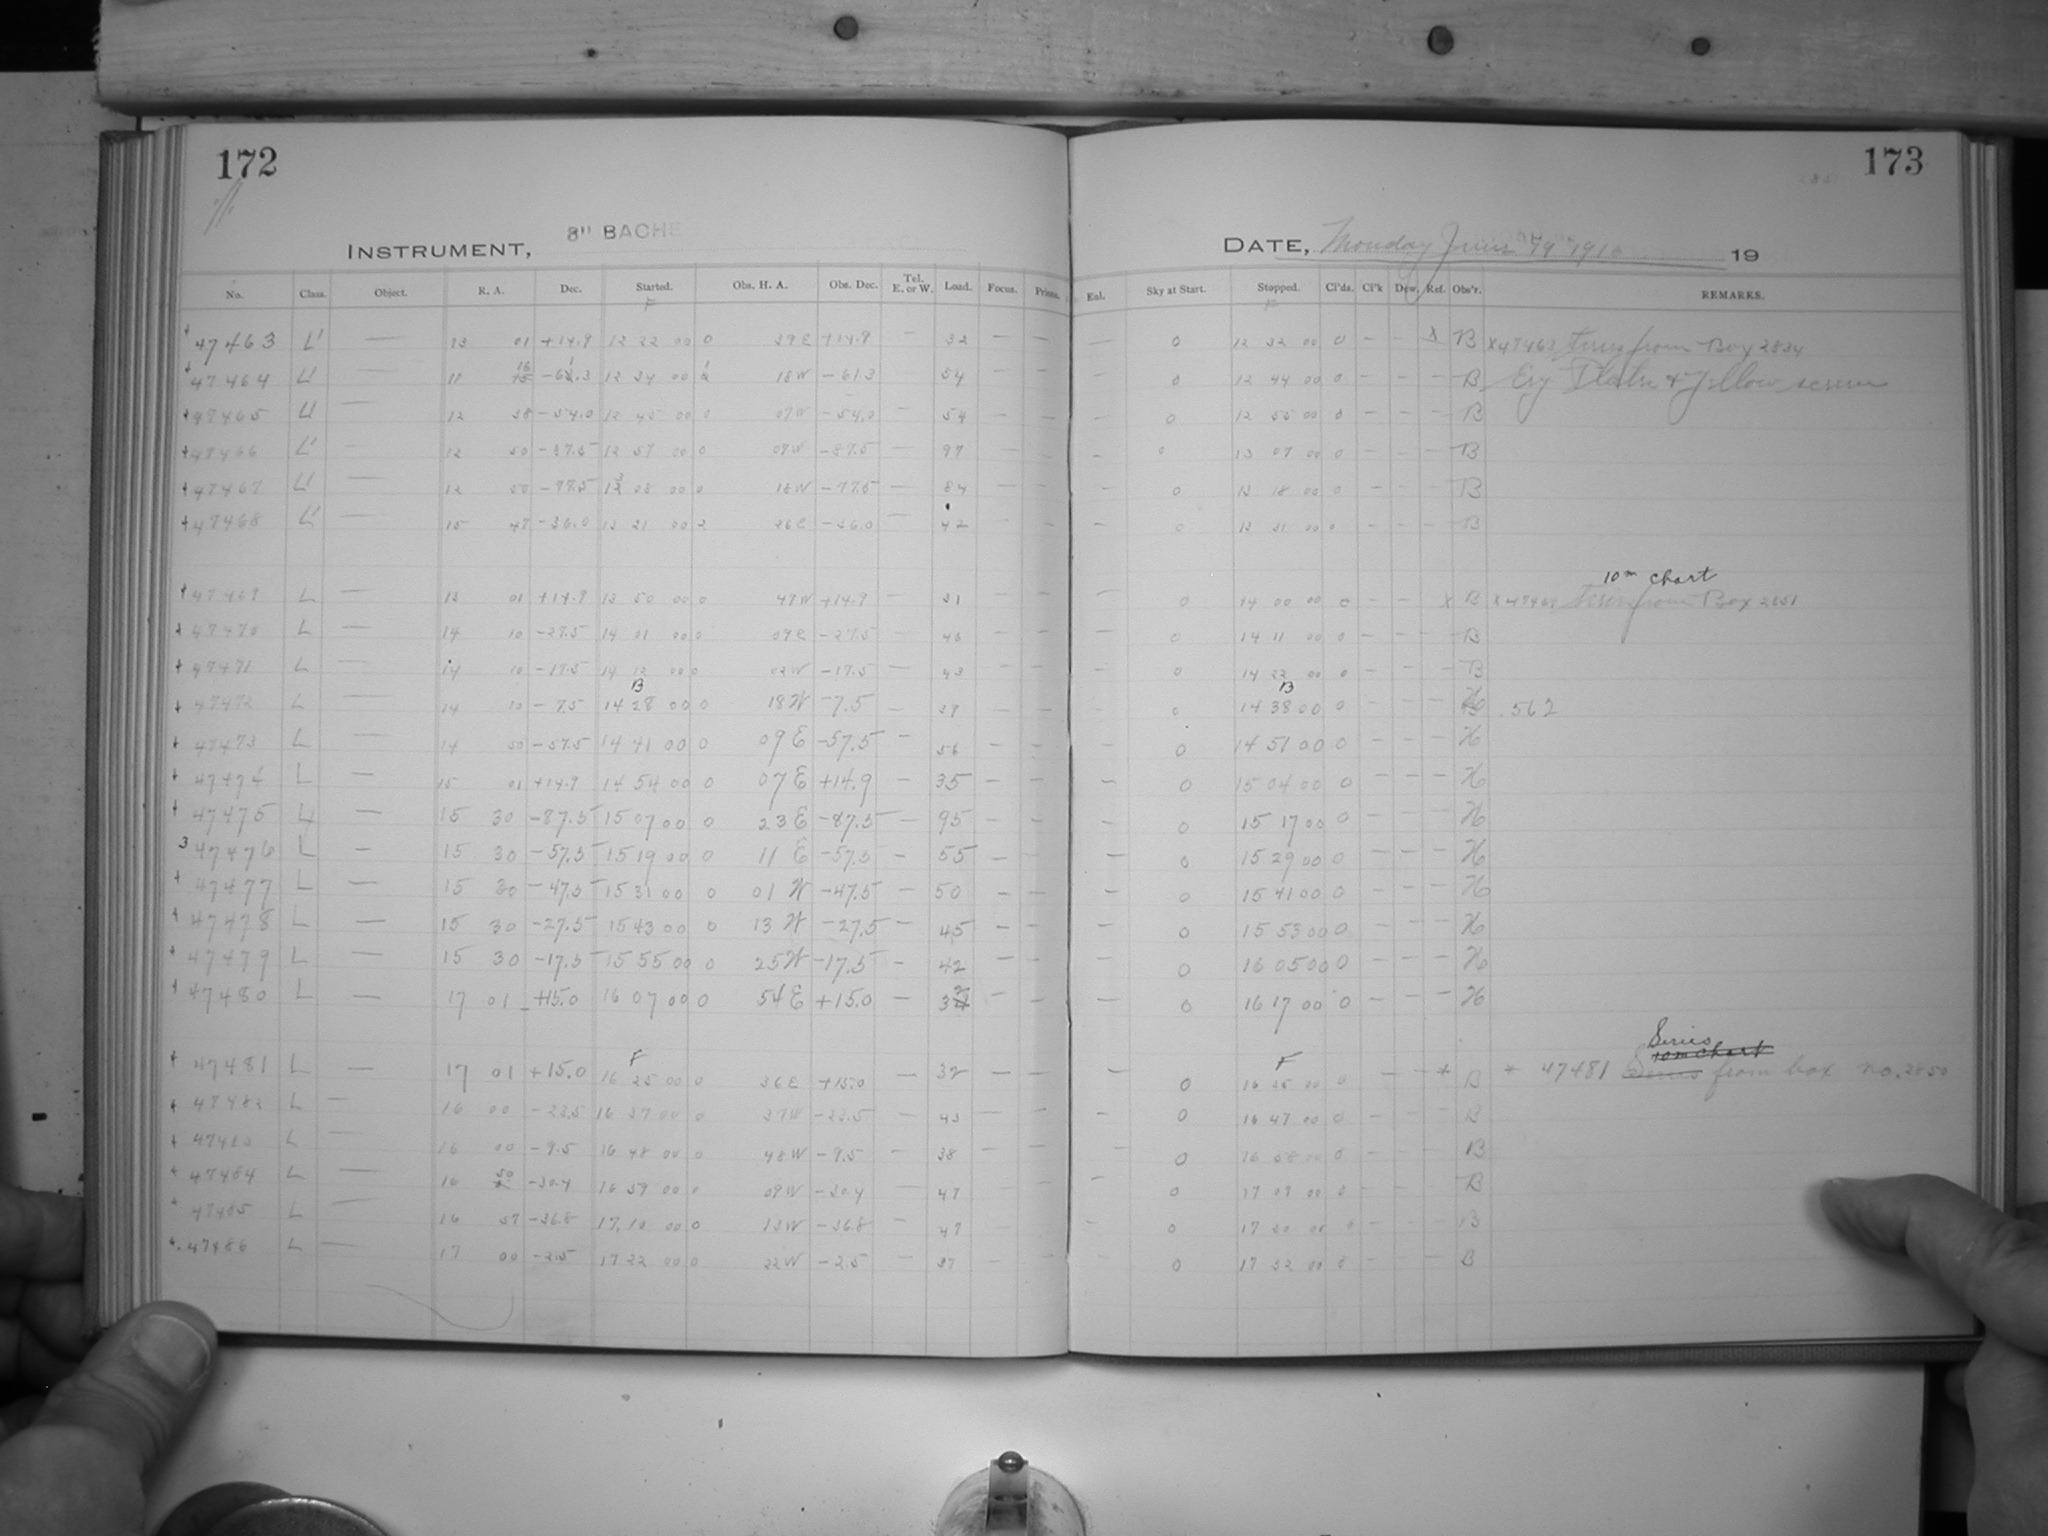 172
173
INSTRUMENT, 8" BACHE
DATE, Monday 1910 19
No. Class. Object. R. A. Dec. Started. Obs. H. A. Obs. Dec. Tel. E. or W. Load. Focus. Prisms. Enl. Sky at Start. Stopped. Cl'ds. Cl'k Dew. Ref. Obs'r. REMARKS.
F F
47463 L' — 13 01 +14.9 12 22 00 0 39 E +14.9 — 32 — — — 0 12 32 00 0 — — X B X47463 from Box 2834
47464 L' — 11 16 -61.3 12 34 00 18 W -61.3 — 54 — — — 0 12 44 00 0 — — — B yellow screen
47465 L' — 12 38 -54.0 12 45 00 0 07 W -54.0 — 54 — — — 0 12 55 00 0 — — — B
47466 L' — 12 50 -87.5 12 57 00 0 07 W -87.5 — 97 — — — 0 13 07 00 0 — — — B
47467 L' — 12 50 -77.5 13 08 00 0 18 W -77.5 — 84 — — — 0 13 18 00 0 — — — B
47468 L' — 15 47 -36.0 13 21 00 2 26 E -36.0 — 42 — — — 0 13 31 00 0 — — — B
10m chart
47469 L — 13 01 +14.9 13 50 00 0 49 W +14.9 — 31 — — — 0 14 00 00 0 — — X B X47469 from Box 2851
47470 L — 14 10 -27.5 14 01 00 0 09 E -27.5 — 46 — — — 0 14 11 00 0 — — — B
47471 L — 14 10 -17.5 14 12 00 0 02 W -17.5 — 43 — — — 0 14 22 00 0 — — — B
B B
47472 L — 14 10 -7.5 14 28 00 0 18 W -7.5 — 39 — — — 0 14 38 00 0 — — — H .562
47473 L — 14 50 -57.5 14 41 00 0 09 E -57.5 — 56 — — — 0 14 51 00 0 — — — H
47474 L — 15 01 +14.9 14 54 00 0 07 E +14.9 — 35 — — — 0 15 04 00 0 — — — H
47475 L — 15 30 -87.5 15 07 00 0 23 E -87.5 — 95 — — — 0 15 17 00 0 — — — H
3 47476 L — 15 30 -57.5 15 19 00 0 11 E -57.5 — 55 — — — 0 15 29 00 0 — — — H
47477 L — 15 30 -47.5 15 31 00 0 01 W -47.5 — 50 — — — 0 15 41 00 0 — — — H
47478 L — 15 30 -27.5 15 43 00 0 13 W -27.5 — 45 — — — 0 15 53 00 0 — — — H
47479 L — 15 30 -17.5 15 55 00 0 25 W -17.5 — 42 — — — 0 16 05 00 0 — — — H
47480 L — 17 01 +15.0 16 07 00 0 54 E +15.0 — — — — 0 16 17 00 0 — — — H
Series
F F 10m chart
47481 L — 17 01 +15.0 16 25 00 0 36 E +15.0 — 32 — — — 0 16 35 00 0 — — * B * 47481 Series from box no. 2850
47482 L — 16 00 -23.5 16 37 00 0 37 W -23.5 — 43 — — — 0 16 47 00 0 — — — B
47483 L — 16 00 -9.5 16 48 00 0 48 W -9.5 — 38 — — — 0 16 58 00 0 — — — B
47484 L — 16 50 -30.4 16 59 00 0 09 W -30.4 — 47 — — — 0 17 09 00 0 — — — B
47485 L — 16 57 -36.8 17 10 00 0 13 W -36.8 — 47 — — — 0 17 20 00 0 — — — B
47486 L — 17 00 -2.5 17 22 00 0 22 W -2.5 — 37 — — — 0 17 32 00 0 — — — B